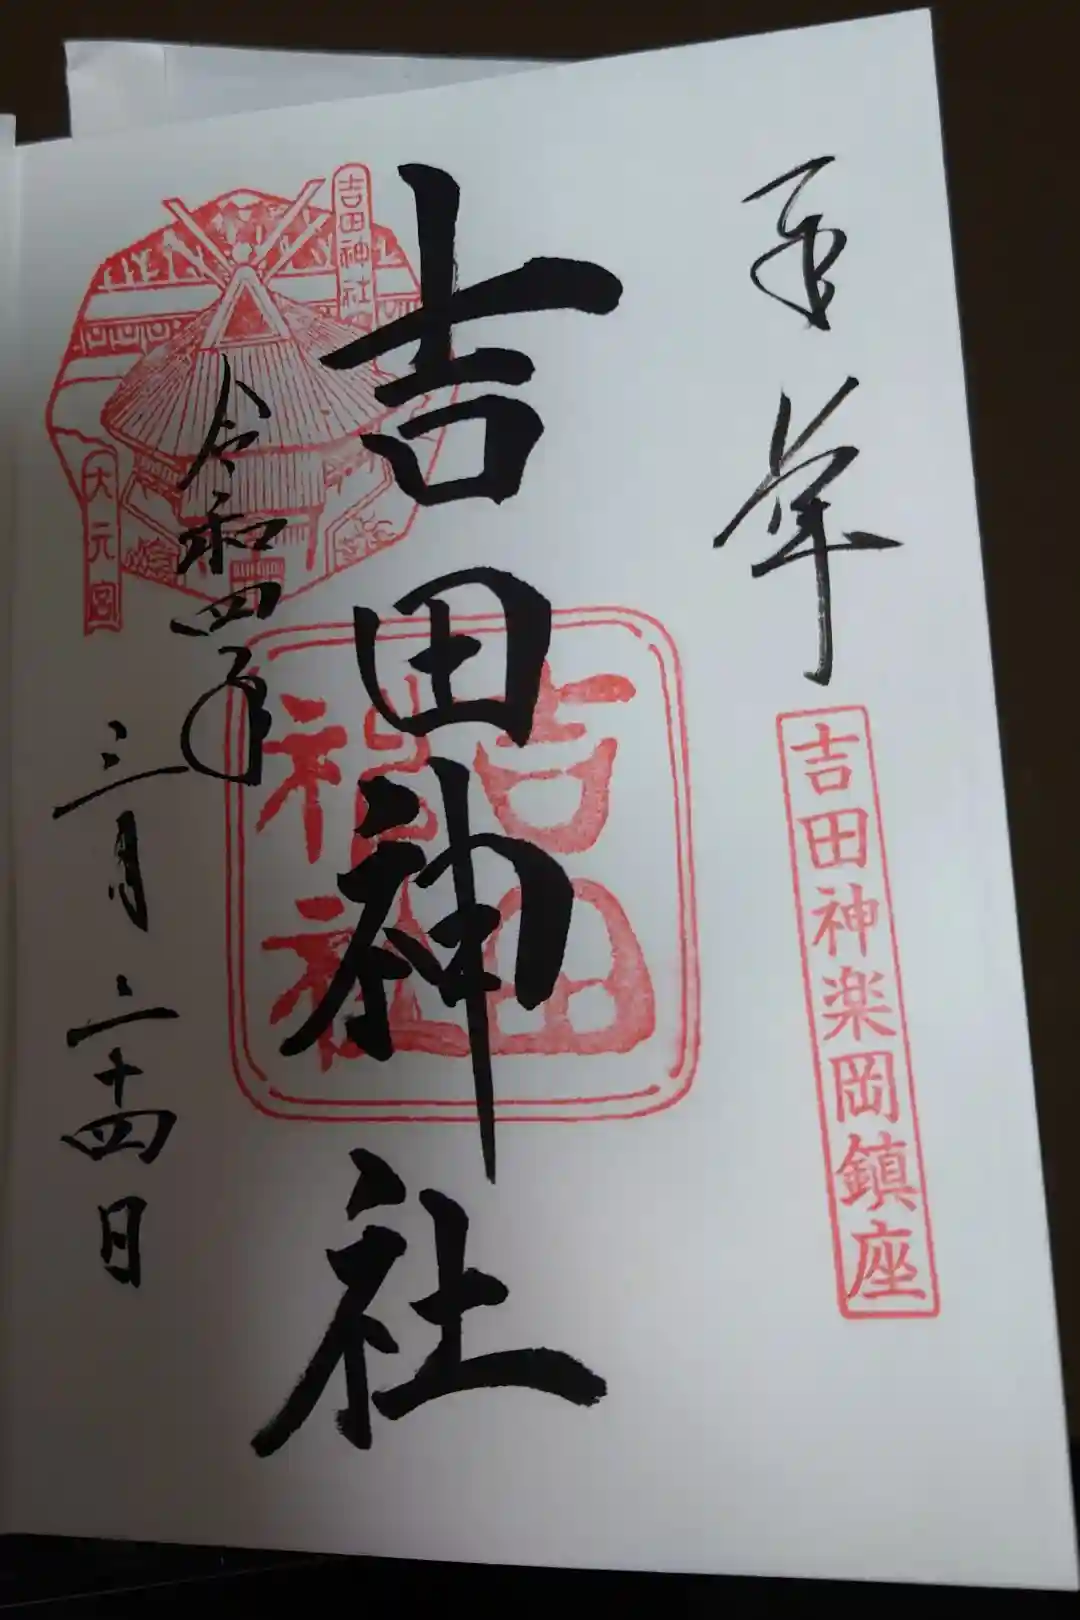 吉田神楽岡鎮座
吉田神社
吉田
神社
吉田神社
大元宮
令和四年
三月二十四日